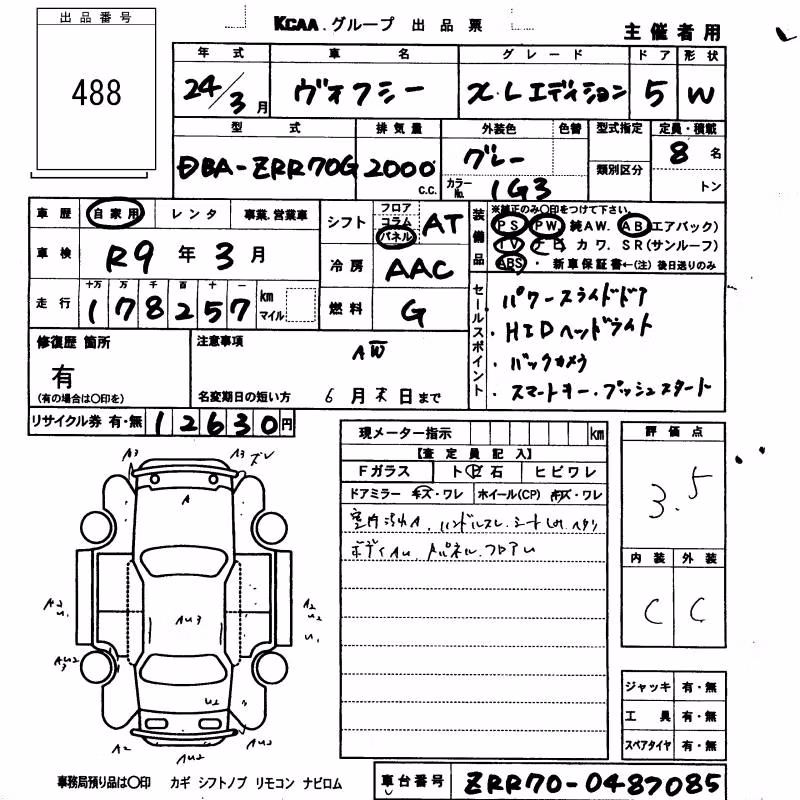 KCAA.グループ 出品票
主催者用
出品番号
488
年式 車名 グレード ドア 形状
24/3月 ヴォクシー X.Lエディション 5 W
型式 排気量 外装色 色替 型式指定 定員・積載
DBA-ZRR70G 2000 c.c. グレー 類別区分 8名
カラーNo. 1G3 トン
車歴 自家用 レンタ 事業.営業車
シフト フロア コラム パネル AT
装備品 ※純正のみ○印をつけて下さい。
PS PW. 純AW. AB(エアバック)
TV ナビ カワ. SR(サンルーフ)
ABS ・ 新車保証書←(注)後日送りのみ
車検 R9年3月
冷房 AAC
走行 十万 万 千 百 十 一
178257 km マイル
燃料 G
セールスポイント
パワースライドドア
・HIDヘッドライト
・バックカメラ
・スマートキー.プッシュスタート
修復歴 箇所
有
(有の場合は○印を)
注意事項
AW
名変期日の短い方 6月末日まで
リサイクル券 有・無 12630円
現メーター指示 km
【査定員記入】
Fガラス ト ビ 石 ヒビワレ
ドアミラー キズ・ワレ ホイール(CP) キズ・ワレ
室内汚れA.ハンドルスレ.シート
ボディAU.
評価点
3.5
内装 外装
C C
A3 A3 ズレ
A
A2 U1 AU3 A2 U1
AU2 3
U2
A2 AU2 AU2
ジャッキ 有・無
工具 有・無
スペアタイヤ 有・無
事務局預り品は○印 カギ シフトノブ リモコン ナビロム
車台番号 ZRR70-0487085